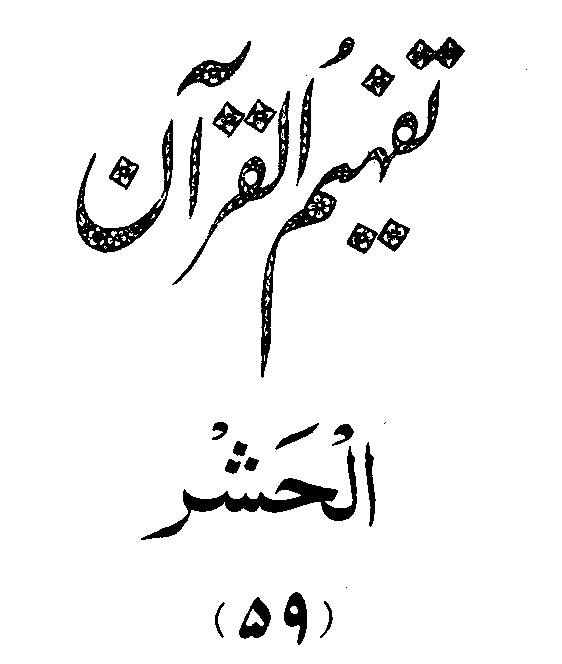 تفہیمُ القرآن
الْحَشْر
(۵۹)